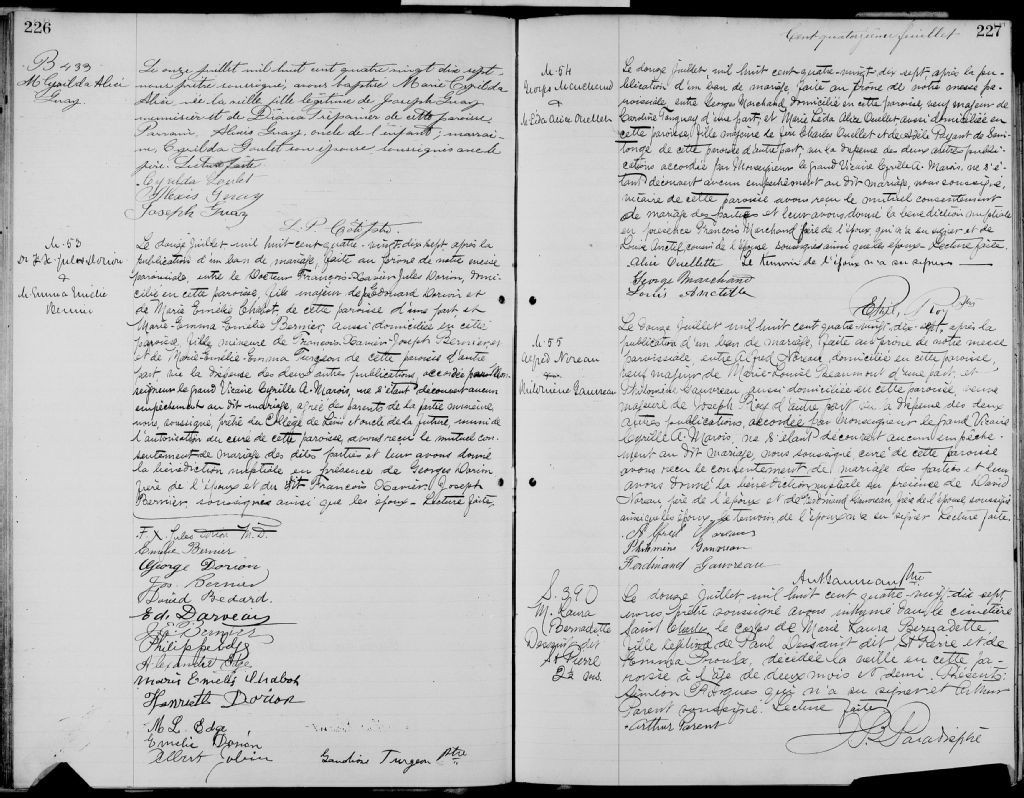 226
B 433
M Cyrilda Alice
Guay
Le onze juillet mil huit cent quatre vingt dix sept
nous prêtre soussigné, avons baptisé Marie Cyrilda
Alice née la veille fille légitime de Joseph Guay
menuisier et de Diana Trépanier de cette paroisse
Parrain, Alexis Guay, oncle de l'enfant; marrai-
ne, Cyrilda Goulet son épouse soussignés avec le
père. Lecture faite
Cyrilda Goulet
Alexis Guay
Joseph Guay
L. P. Côté ptre.
M. 53
Dr F. X. Jules Dorion
&
M. Emma Emélie
Bernier
Le douze juillet mil huit cent quatre-vingt-dix sept, après la
publication d'un ban de mariage, faite au prône de notre messe
paroissiale, entre le Docteur François-Xavier Jules Dorion, domi-
cilié en cette paroisse, fils majeur de Edouard Dorion et
de Marie Emélie Chabot, de cette paroisse d'une part, et
Marie-Emma Emélie Bernier, aussi domiciliée en cette
paroisse, fille mineure de François-Xavier Joseph Bernier,
et de Marie-Emélie-Emma Turgeon de cette paroisse d'autre
part vu la dispense des deux autres publications accordée par Mon-
seigneur le grand Vicaire Cyrille A. Marois, ne s'étant découvert aucun
empêchement au dit mariage, agréé des parents de la partie mineure,
nous, soussigné, prêtre du Collège de Lévis et oncle de la future, muni de
l'autorisation du curé de cette paroisse, avons reçu le mutuel con-
sentement de mariage des dites parties et leur avons donné
la bénédiction nuptiale en présence de Georges Dorion
frère de l'époux et du dit François Xavier Joseph
Bernier soussignés ainsi que les époux - Lecture faite,
F. X. Jules Dorion M.D.
Emélie Bernier
George Dorion
Jos. Bernier
David Bedard.
Ed. Darveau
Bernier
Philippe Edge
Alexandre Edge
Marie Emelie Chabot
Henriette Dorion
M. L. Edge
Emélie Dorion
Albert
Gaudiose Turgeon Ptre
Cent quatorzième feuillet
227
M. 54
George Marchand
&
M. Léda Alice Ouellet
Le douze juillet, mil huit cent quatre-vingt dix sept, après la pu-
blication d'un ban de mariage, faite au prône de notre messe pa-
roissiale, entre George Marchand, domicilié en cette paroisse, veuf majeur de
Caroline d'une part, et Marie Léda Alice Ouellet aussi domiciliée en
cette paroisse, fille majeure de feu Charles Ouellet & de Adèle
de cette paroisse d'autre part, vu la dispense des deux autres publi-
cations accordée par Monseigneur le grand Vicaire Cyrille A. Marois, ne s'é-
tant découvert aucun empêchement au dit mariage, nous soussigné,
vicaire de cette paroisse avons reçu le mutuel consentement
de mariage des parties et leur avons donné la bénédiction nuptiale
en présence François Marchand frère de l'époux, qui n'a su signer et de
Louis Anctil, cousin de l'épouse soussignés ainsi que les époux - Lecture faite
Alice Ouellette Le témoin de l'époux n'a su signer
George Marchand
Louis Anctille
Roy ptre
M. 55
Alfred Noreau
&
Philomène Gauvreau
Le douze juillet mil huit cent quatre-vingt-dix-sept, après la
publication d'un ban de mariage, faite au prône de notre messe
paroissiale entre Alfred Noreau domicilié en cette paroisse,
veuf majeur de Marie-Louise Beaumont d'une part, et
Philomène Gauvreau, aussi domiciliée en cette paroisse, veuve
majeure de Joseph d'autre part vu la dispense des deux
autres publications, accordée par Monseigneur le grand Vicaire
Cyrille A. Marois, ne s'étant découvert aucun empêche-
ment au dit mariage, nous soussigné curé de cette paroisse
avons reçu le consentement de mariage des parties et leur
avons donné la bénédiction nuptiale en présence de David
Noreau père de l'époux et de Ferdinand Gauvreau, père de l'épouse soussigné
ainsi que les époux, le témoin de l'époux n'a su signer Lecture faite.
Alfred Noreau
Philomène Gauvreau
Ferdinand Gauvreau
Ptre
S. 390
M. Laura
Bernadette
Dessaint dit
St Pierre
2½ ms.
Le douze juillet mil huit cent quatre-vingt-dix sept
nous prêtre soussigné avons inhumé dans le cimetière
Saint Charles, le corps de Marie Laura Bernadette
fille légitime de Paul Dessaint dit St Pierre et de
Emma Proulx, décédée la veille en cette pa-
roisse à l'âge de deux mois et demi. Présents:
Siméon qui n'a su signer et Arthur
Parent soussigné. Lecture faite
Arthur Parent
Paradis ptre